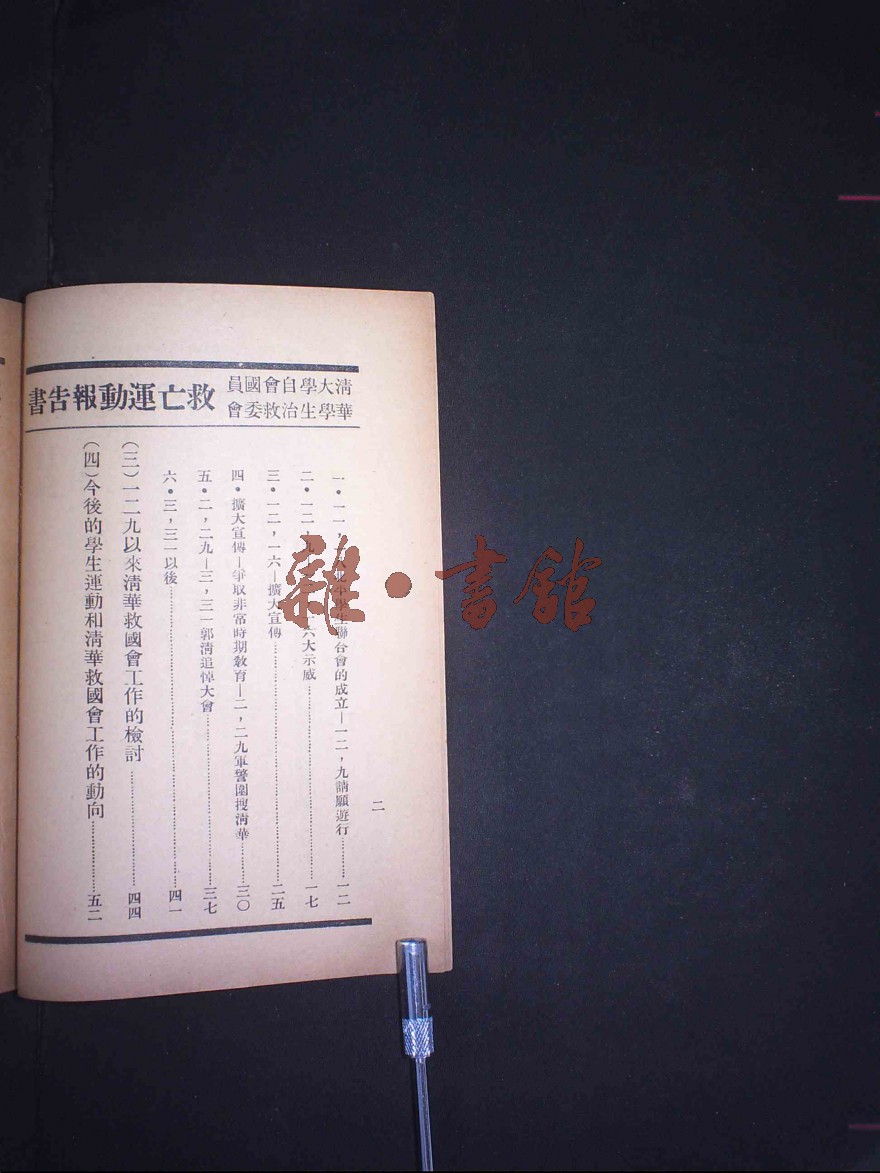 清華大學學生自治會救國委員會
救亡運動報告書
二
一•一一,生聯合會的成立—一二,九請願遊行………一二
二•一二,六大示威………一七
三•一二,一六—擴大宣傳………二五
四•擴大宣傳—爭取非常時期教育—二,二九軍警圍搜清華………三〇
五•二,二九—三,三一郭清追悼大會………三七
六•三,三一以後………四一
(三)一二九以來清華救國會工作的檢討………四四
(四)今後的學生運動和清華救國會工作的動向………五二
雜•書館